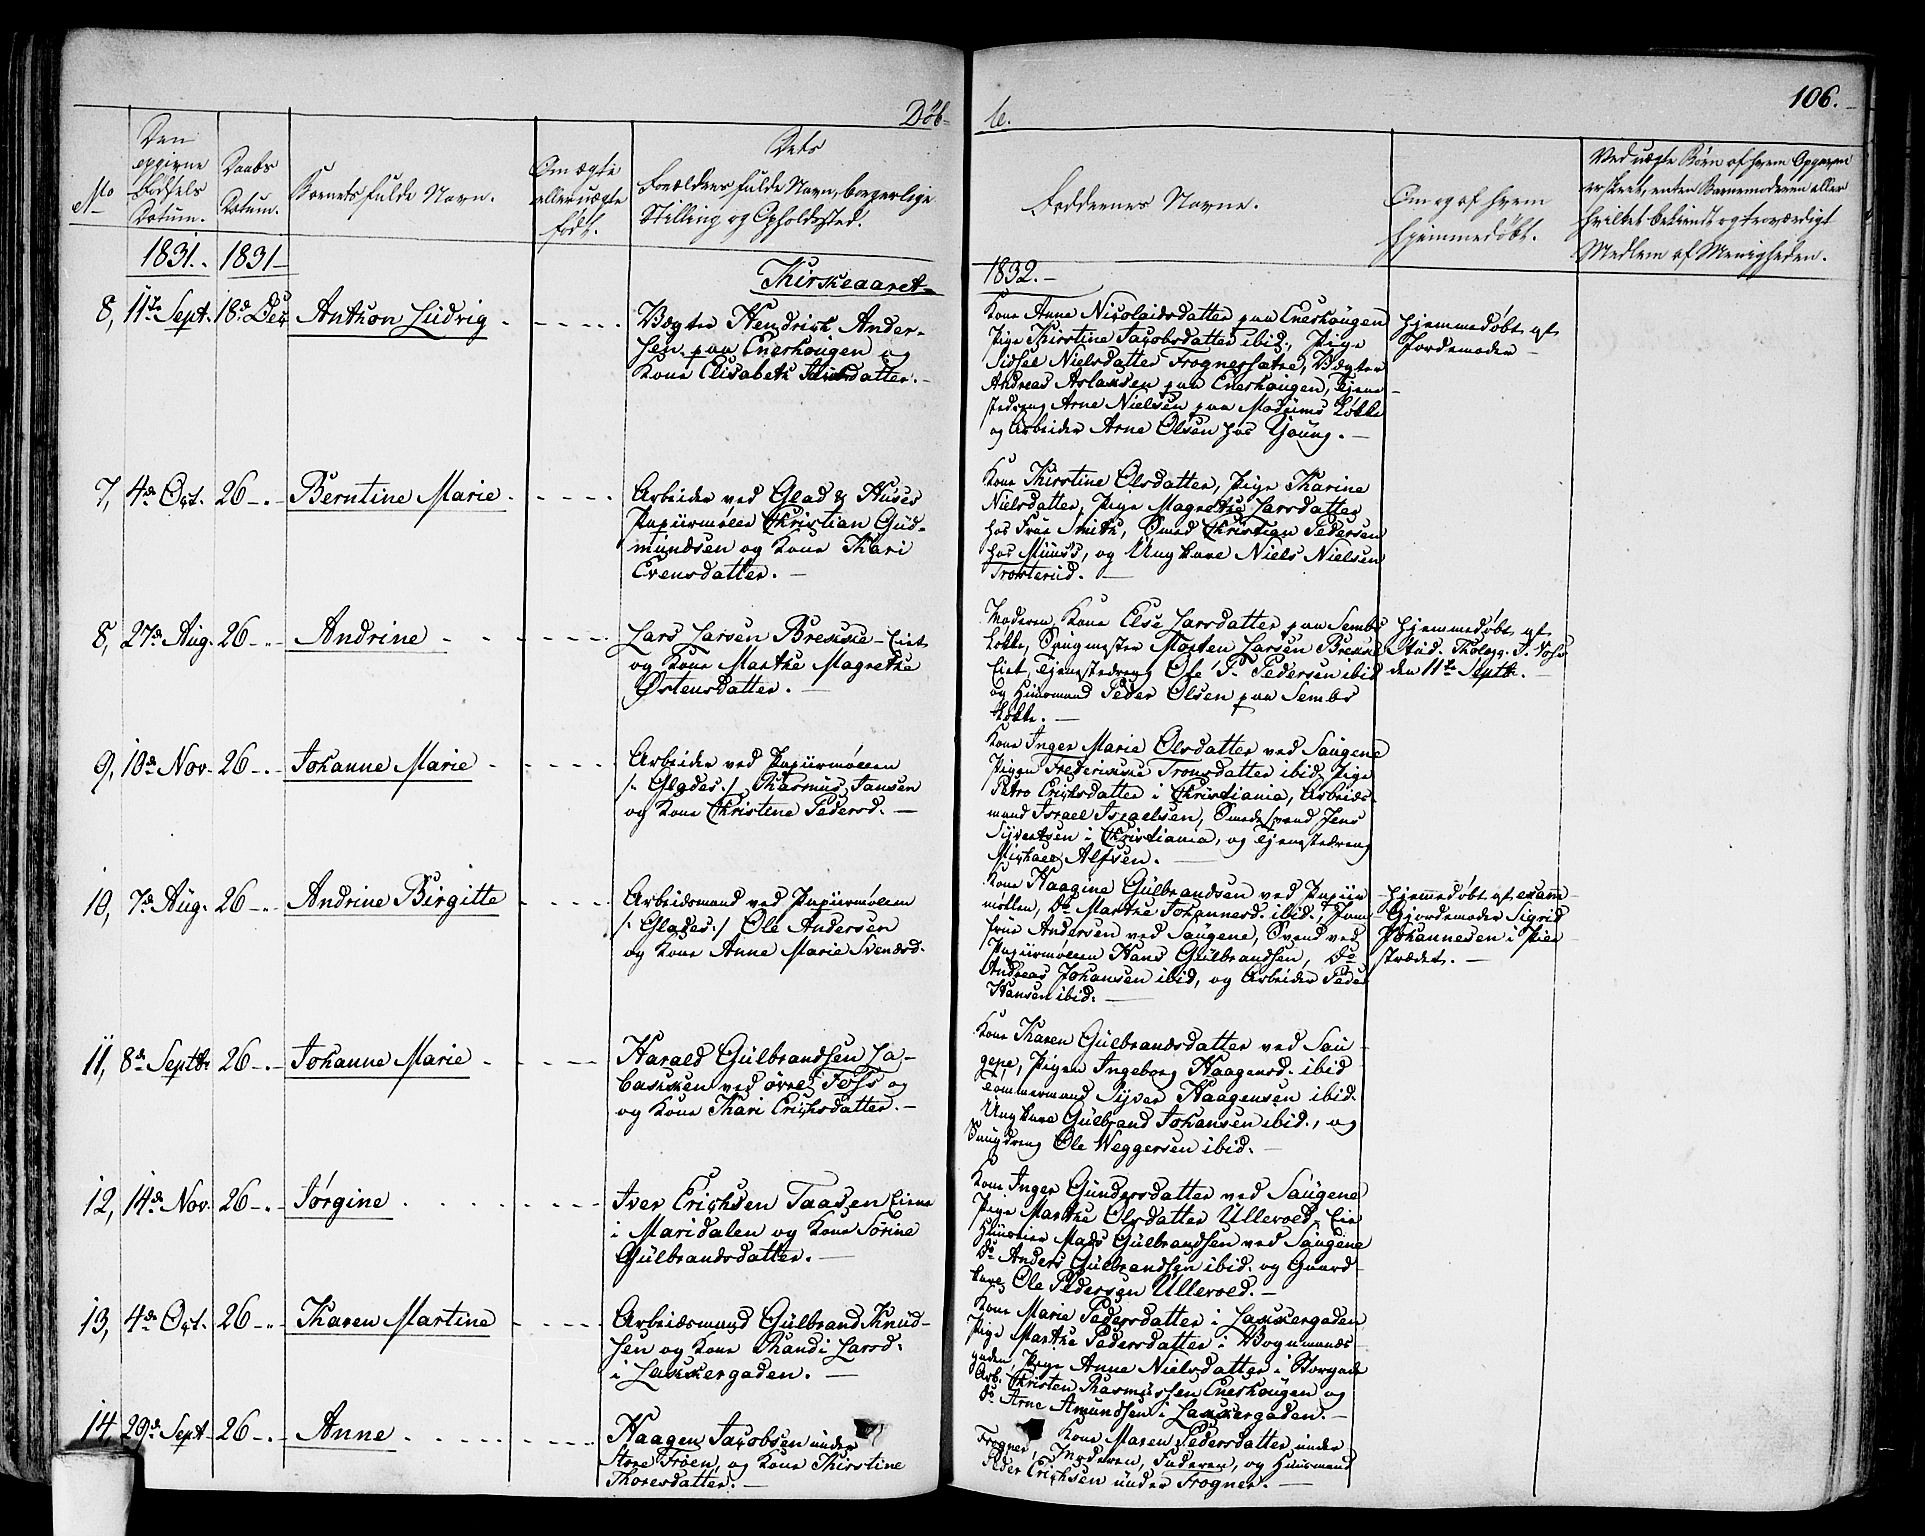 Døb-
te.
106.
No
Den opgivne Fødsels Datum.
Daabs Datum.
Barnets fulde Navn.
Om ægte eller uægte født.
Dets
Forældres fulde Navn, borgerlige
Stilling og Opholdssted.
Faddernes Navne.
Om og af hvem
hjemmedøbt.
Ved uægte Børn af hvem Opgaven
er skeet, enten Barnemoderen eller
hvilket bekiendt og troværdigt
Medlem af Menigheden.
1831. 1831
Kirkeaaret
1832.
8, 11te Sept. 18d. Dec. Anthon Ludvig
Vægter Hendrich Ander-
sen paa Enerhougen og
Kone Elisabeth datter.
Kone Anne Nicolaidsdatter paa Enerhougen
Pige Kirstine Jacobsdatter ibid., Pige
Sidsel Nielsdatter Frognersætre, Vægter
Andreas Aslaksen paa Enerhougen, Tjene-
stedreng Arne Nielsen paa Modums Løkke
og Arbeider Arne Olsen hos Young.
hjemmedøbt af
Jordemoder
7, 4de Oct. 26 Berntine Marie
Arbeider ved Glad & Huses
Papiirmølle Christian Gud-
mundsen og Kone Kari
Evensdatter.
Kone Kirstine Olsdatter, Pige Karine
Nielsdatter, Pige Magrethe Larsdatter
hos Frue Smith, Smed Christian Pedersen
hos Muus's, og Ungkarl Niels Nielsen
Trosterud.
8, 27d. Aug. 26 Andrine
Lars Larsen Brekke-Eiet
og Kone Marthe Magrethe
Østensdatter.
Moderen, Kone Else Larsdatter paa Sembs
Løkke, Saugmester Morten Larsen Brekke
Eiet, Tjenestedreng Ole P. Pedersen ibid
og Huusmand Peder Olsen paa Sembs
Løkke.
hjemmedøbt af
Stud. Theolog. J.
den 11te Septbr.
9, 10d. Nov. 26 Johanne Marie
Arbeider ved Papiirmøllen
/: Glades :/ Rasmus Jansen
og Kone Christine Pedersd.
Kone Inger Marie Olsdatter ved Saugene
Pigen Frederikke Tronsdatter ibid, Pige
Petro Erichsdatter i Christiania, Arbeids-
mand Israel Israelsen, Smedesvend Jens
Syvertsen i Christiania, og Tjenestedreng
Michael Alfsen.
10, 7d. Aug. 26 Andrine Birgitte
Arbeidsmand ved Papiirmøllen
/: Glades :/ Ole Andersen
og Kone Anne Marie Svendsd.
Kone Haagine Gulbrandsen ved Papiir-
møllen, Do Marthe Johannesd. ibid., Jom-
frue Andersen ved Saugene, Svend ved
Papiirmøllen Hans Gulbrandsen, Do
Andreas Johansen ibid, og Arbeider Peder
Hansen ibid.
hjemmedøbt af exam-
Gjordemoder Sigrid
Johannesen i Pier-
strædet.
11, 8de Septbr 26 Johanne Marie
Harald Gulbrandsen La-
bakken ved øvre Foss og
og Kone Kari Erichsdatter.
Kone Karen Gulbrandsdatter ved Sau-
gene, Pigen Ingeborg Haagensd. ibid
Tømmermand Syver Haagensen ibid.
Ungkarl Gulbrand Johansen ibid., og
Saugdreng Ole Weggersen ibid.
12, 14d. Nov. 26 Jørgine
Iver Erichsen Taasen Eiene
i Maridalen og Kone Sørine
Gulbrandsdatter.
Kone Inger Gundersdatter ved Saugene
Pige Marthe Olsdatter Ullevold-Eie
Huuseier Mads Gulbrandsen ved Saugene
Do Anders Gulbrandsen ibid. og Gaard-
karl Ole Pedersen Ullevold.
13, 4de Oct. 26 Karen Martine
Arbeidsmand Gulbrand Knud-
sen og Kone Randi Larsd.
i Lakkergaden.
Kone Marie Pedersdatter i Lakkergaden
Pige Marthe Pedersdatter i Vognmands-
gaden, Pige Anne Nielsdatter i Storgade
Arb. Christen Rasmussen Enerhougen og
Do Arne Amundsen i Lakkergaden.
14 29d. Sept. 26 Anne
Haagen Jacobsen under
Store Frøen, og Kone Kirstine
Thoresdatter.
Kone Maren Pedersdatter under
Frogner, Moderen, Faderen, og Huusmand
Peder Erichsen under Frogner.